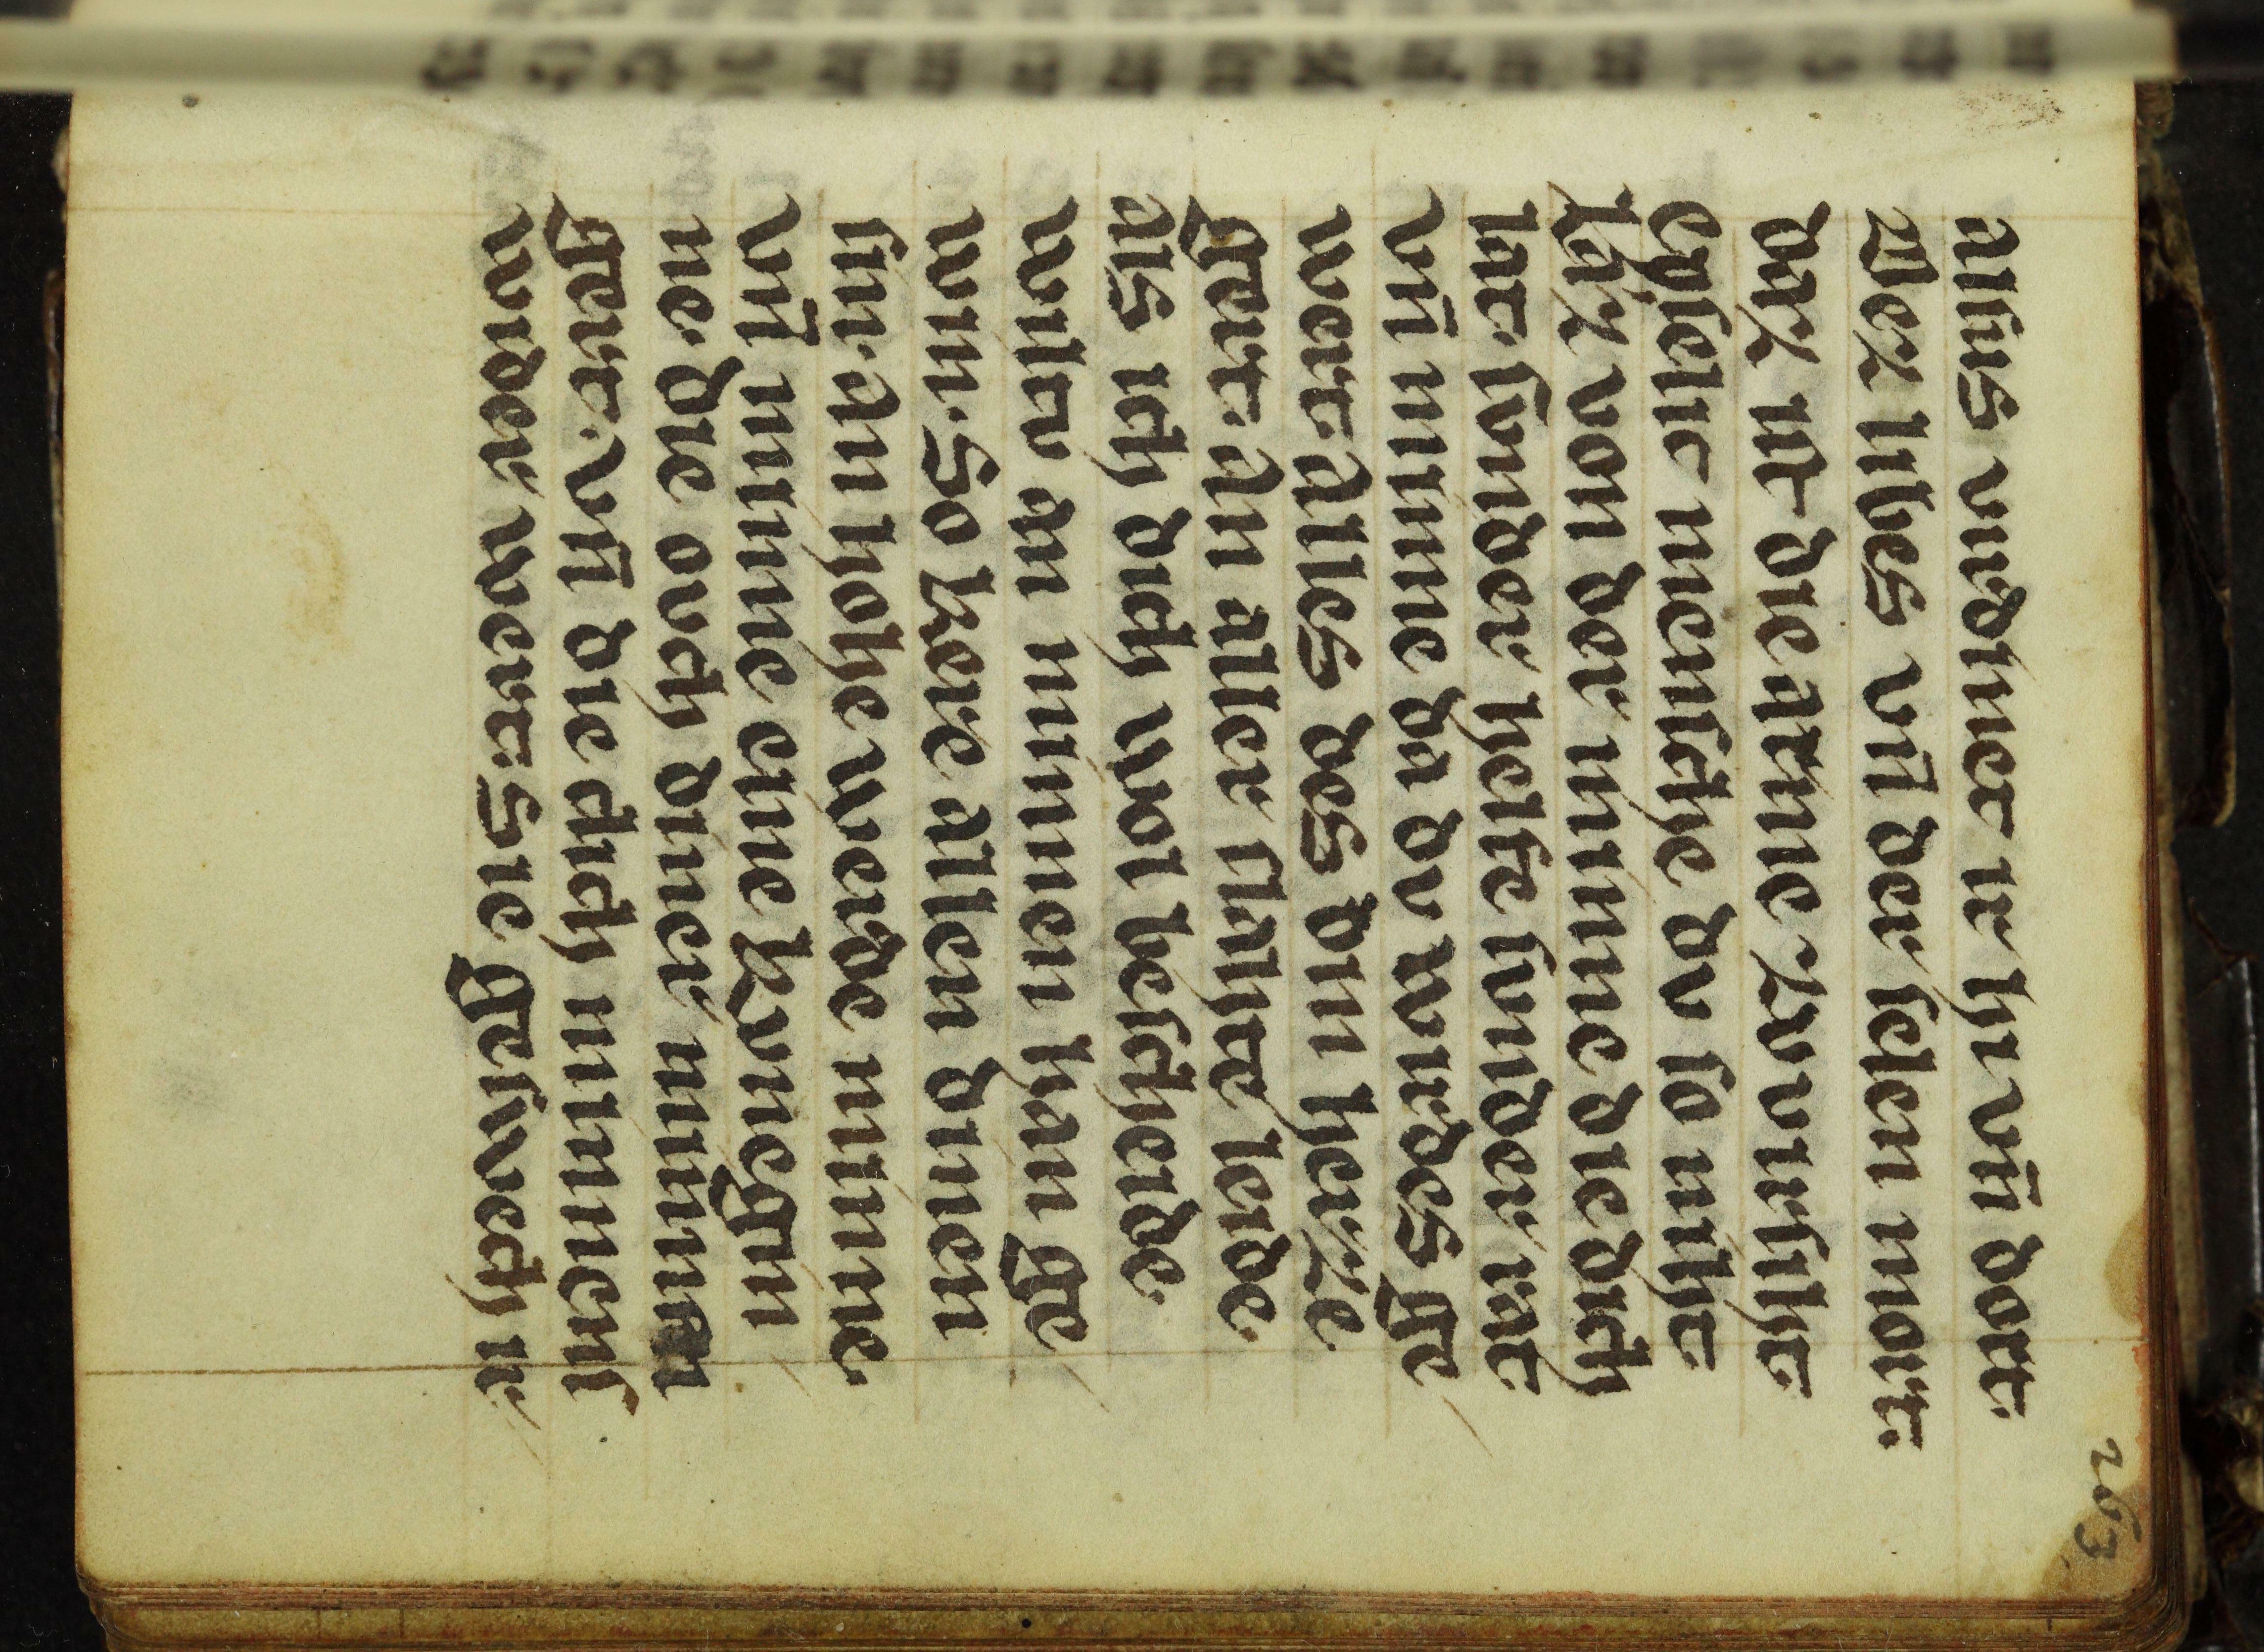 263
alsus vurdinet ir hi vn̄ dort.
Dez libes vn̄ der selen mort.
daz ist die arme zvuirsiht
echent mensche dv so niht
kaz von der minne die dich
lat. svnder helfe svnder rat
vn̄ minne da dv wirdes ge
wert. alles des din herze
gert. an aller slahte leide.
als ich dich wol bescheide
wiltv an minnen han ge
win. So kere allen dinen
sin. an hohe werde minne.
vn̄ minne eine kvnegin
ne. die ovch diner minnen
gert. vn̄ die dich minnens
wider wert. Sie geswech ir